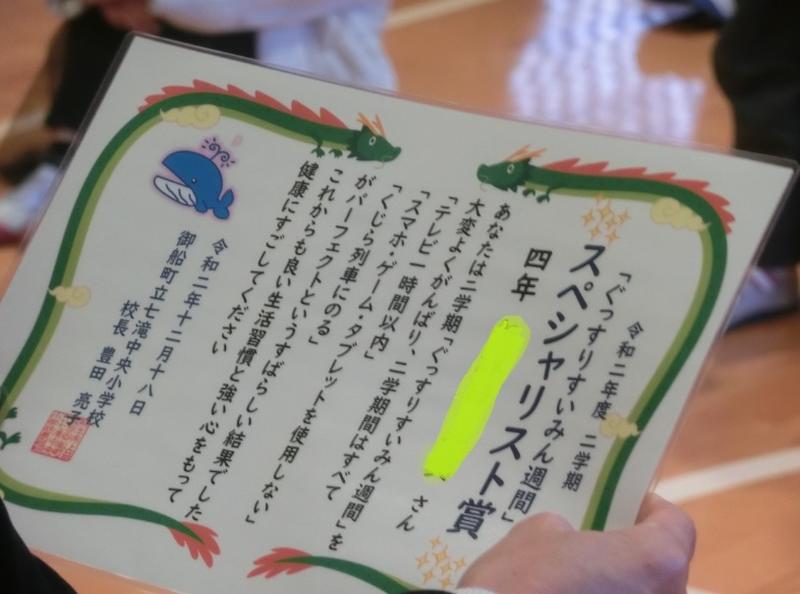 令和二年度　二学期
「ぐっすりすいみん週間」
スペシャリスト賞
四年　さん
あなたは二学期「ぐっすりすいみん週間」を
大変よくがんばり、二学期間はすべて
「テレビ一時間以内」
「スマホ・ゲーム・タブレットを使用しない」
「くじら列車にのる」
がパーフェクトというすばらしい結果でした
これからも良い生活習慣と強い心をもって
健康にすごしてください
令和二年十二月十八日
御船町立七滝中央小学校
校長　豊田　亮子